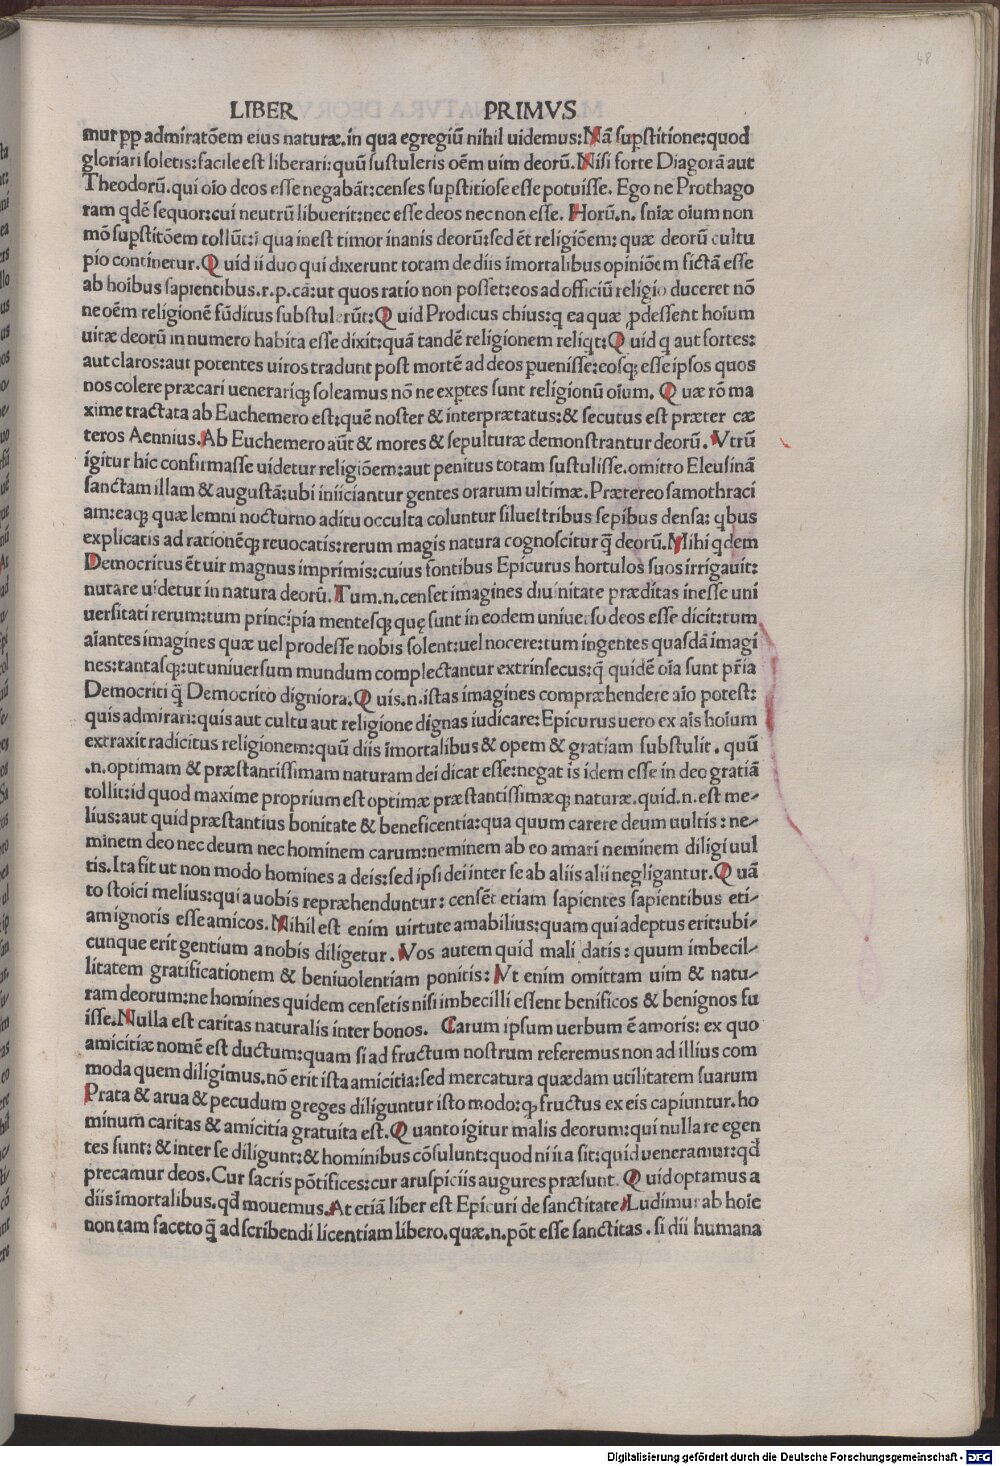 48
LIBER PRIMVS
mur pp admiratõem eius naturæ.in qua egregiũ nihil uidemus:Nã supstitione:quod
gloriari soletis:facile est liberari:quũ sustuleris oẽm uim deorũ.Nisi forte Diagorã aut
Theodorũ.qui oĩo deos esse negabãt:censes supstitiose esse potuisse. Ego ne Prothago
ram qdẽ sequor:cui neutrũ libuerit:nec esse deos nec non esse. Horũ.n. sniæ oĩum non
mõ supstitõem tollũt:ĩ qua inest timor inanis deorũ:sed ẽt religiõem: quæ deorũ cultu
pio continetur.Quid ii duo qui dixerunt totam de diis ĩmortalibus opiniõem fictã esse
ab hoĩbus sapientibus.r.p.cã:ut quos ratio non posset:eos ad officiũ religio duceret nõ
ne oẽm religionẽ fũditus substulerũt:Quid Prodicus chius:q ea quæ pdessent hoĩum
uitæ deorũ in numero habita esse dixit:quã tandẽ religionem reliqt:Quid q aut fortes:
aut claros:aut potentes uiros tradunt post mortẽ ad deos puenisse:eosq; esse ipsos quos
nos colere præcari uenerariq; soleamus nõ ne exptes sunt religionũ oĩum. Quæ rõ ma
xime tractata ab Euchemero est:quẽ noster & interprætatus:& secutus est præter cæ
teros Aennius.Ab Euchemero aũt & mores & sepulturæ demonstrantur deorũ. Vtrũ
igitur hic confirmasse uidetur religiõem:aut penitus totam sustulisse.omitto Eleusinã
sanctam illam & augustã:ubi iniiciantur gentes orarum ultimæ.Prætereo samothraci
am:eaq; quæ lemni nocturno aditu occulta coluntur siluestribus sepibus densa: qbus
explicatis ad rationẽq; reuocatis:rerum magis natura cognoscitur q̃ deorũ.Mihi qdem
Democritus ẽt uir magnus imprimis:cuius fontibus Epicurus hortulos suos irrigauit:
nutare uidetur in natura deorũ.Tum.n.censet imagines diuinitate præditas inesse uni
uersitati rerum:tum principia mentesq; quę sunt in eodem uniuerso deos esse dicit:tum
aĩantes imagines quæ uel prodesse nobis solent:uel nocere:tum ingentes quasdã imagi
nes:tantasq;:ut uniuersum mundum complectantur extrinsecus:q̃ quidẽ oĩa sunt pr̃ia
Democriti q̃ Democrito digniora.Quis.n.istas imagines compræhendere aĩo potest:
quis admirari:quis aut cultu aut religione dignas iudicare:Epicurus uero ex aĩs hoĩum
extraxit radicitus religionem:quũ diis ĩmortalibus & opem & gratiam substulit. quũ
.n.optimam & præstantissimam naturam dei dicat esse:negat is idem esse in deo gratiã
tollit:id quod maxime proprium est optimæ præstantissimæq; naturæ.quid.n.est me-
lius:aut quid præstantius bonitate & beneficentia:qua quum carere deum uultis: ne-
minem deo nec deum nec hominem carum:neminem ab eo amari neminem diligi uul
tis.Ita fit ut non modo homines a deis:sed ipsi dei inter se ab aliis alii negligantur.Quã
to stoici melius:qui a uobis repræhenduntur: censẽt etiam sapientes sapientibus eti-
am ignotis esse amicos. Nihil est enim uirtute amabilius:quam qui adeptus erit:ubi-
cunque erit gentium a nobis diligetur. Vos autem quid mali datis: quum imbecil-
litatem gratificationem & beniuolentiam ponitis: Vt enim omittam uim & natu-
ram deorum:ne homines quidem censetis nisi imbecilli essent benificos & benignos fu
isse.Nulla est caritas naturalis inter bonos. Carum ipsum uerbum ẽ amoris: ex quo
amicitiæ nomẽ est ductum:quam si ad fructum nostrum referemus non ad illius com
moda quem diligimus.nõ erit ista amicitia:sed mercatura quædam utilitatem suarum
Prata & arua & pecudum greges diliguntur isto modo:q; fructus ex eis capiuntur.ho
minum caritas & amicitia gratuita est.Quanto igitur malis deorum:qui nulla re egen
tes sunt: & inter se diligunt:& hominibus cõsulunt:quod ni ita sit:quid ueneramur:qd̃
precamur deos.Cur sacris põtifices:cur aruspiciis augures præsunt. Quid optamus a
diis ĩmortalibus.qd̃ mouemus.At etiã liber est Epicuri de sanctitate.Ludimur ab hoĩe
non tam faceto q̃ ad scribendi licentiam libero.quæ.n.põt esse sanctitas.si dii humana
Digitalisierung gefördert durch die Deutsche Forschungsgemeinschaft - DFG